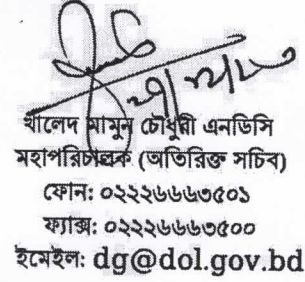 খালেদ মামুন চৌধুরী এনডিসি
মহাপরিচালক (অতিরিক্ত সচিব)
ফোন: ০২২২৬৬৬৩৫০১
ফ্যাক্স: ০২২২৬৬৬৩৫০০
ইমেইল: dg@dol.gov.bd